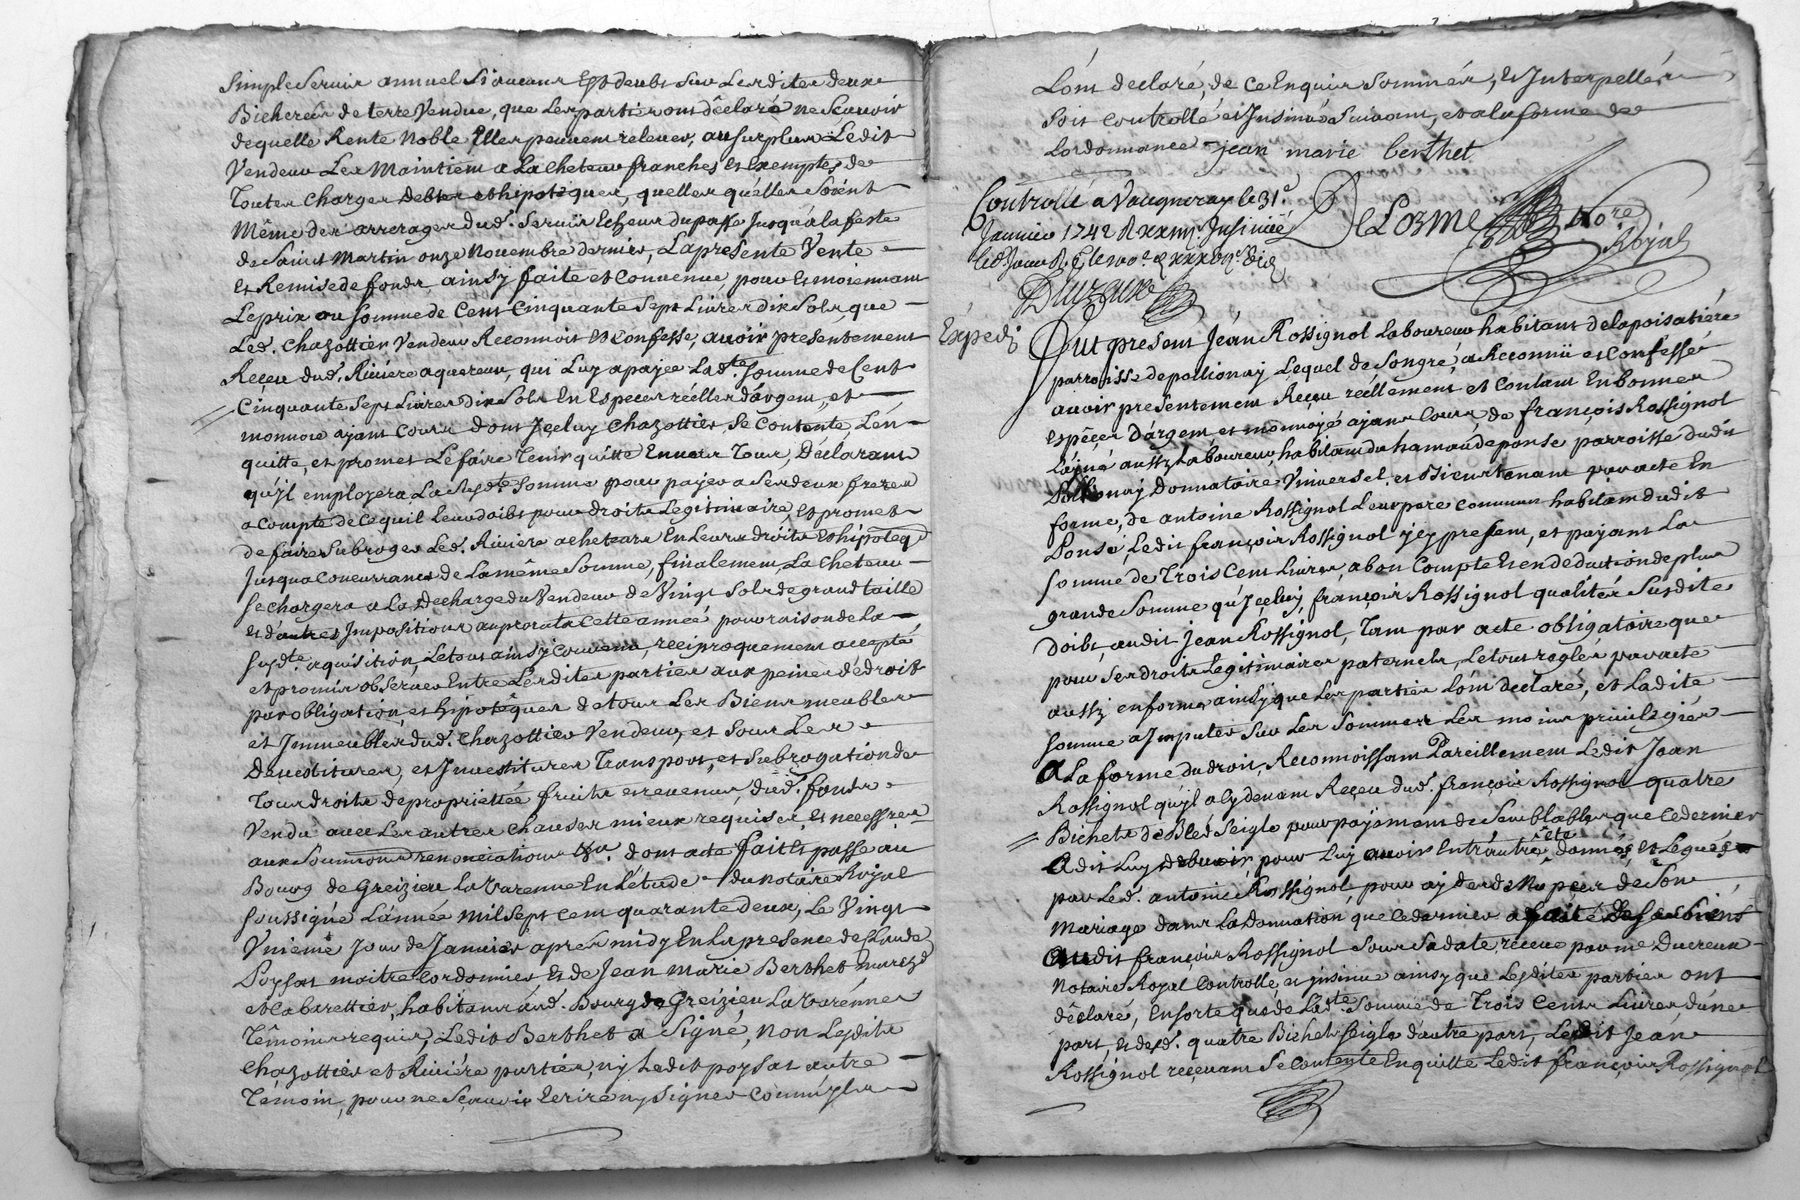 simple servis annuel si aucun est deubt sur lesdites deux
Bicherées de terre Vendue, que les parties ont déclaré ne scavoir
de quelle Rente Noble Elles peuvent relever, au surplus Ledit
Vendeur Les Maintient a La cheteur franches et Exemptes de
Toutes charges debtes et hipotéques, quelles quélles soiént
Même des arrerages dud. servis Echeus du passé Jusqu'á la feste
de Saint Martin onze Novembre dernier, La présente Vente
et Remise de fonds, ainsy faite et convenue, pour et moiennant
Le prix ou somme de Cent Cinquante Sept Livres dix Sols, que
Led. Chazottier Vendeur Reconnoit et Confesse, avoir présentement
Reçeu dud. Riviere aquereur, qui Luy a payée Lad.te somme de Cent
Cinquante Sept Livres dix Sols En Espeçes réelles d'árgent, et
monnoie ayant cours dont Jçeluy Chazottier, se contente L'én
quitte, et promet Le faire Tenir quitte Envers Tous, Déclarant
qu'jl employera La susd.te somme pour payer a ses deux freres
a compte de ce quil leur doibt pour droits Legitimaires, et promet
de faire subroger Led. Riviere acheteur En Leurs droits et hipoteq.
Jusqua Concurrance de La même Somme, finalement La cheteur
se chargera a La Decharge du Vendeur de Vingt Sols de grand taille
et d'autres Impositions au prorata cette année pour raison de la
susd.te aquisition, Le tout ainsy convenu, réciproquement accepté
et promis observer Entre Lesdites parties aux peines dé droit
par obligation, et hipotéques de tous Les Biens meubles
et Jmmeubles dud. Chazottier Vendeur, et sous Les
Devestitures, et Jnvestitures Transport, et subrogation de
Tous droits de propriettée fruits et revenus, dud. fonds
Vendu avec Les autres clauses mieux requises, et necessres
aux soumissions renonciations &a. dont acte fait et passé au
Bourg de Greizieu La Varenne En L'étude du notaire Royal
soussigné L'année Mil Sept cent quarante deux, Le Vingt
Vnieme Jour de Janvier aprés midy En La presence de Claude
Poysat maitre Cordonnier et de Jean Marie Berthet march.d
et Cabarettier, habitans aud. Bourg de Greizieu La Varénne
Témoins requis, Ledit Berthet a Signé, non Lesdits
Chazottier et Riviére parties, ny Ledit poysat autre
Témoin, pour ne sçavoir Ecrire ny signer comm'jls
L'ont declaré, de ce Enquis sommés, et Interpellés
Soit Controllé et Jnsinué Suivant, et a la forme de
Lordonnance Jean marie berthet
Controllé a Vaugneray le 31e
Janvier 1742
Insinué
Delorme No.re
Royal
Expedi
Fut present Jéan Rossignol Laboureur habitant de la poisatiére
parroisse de pollionay Lequel de son gré, a Reconnu et confessé
avoir presentement Reçeu réellement et contant En bonnes
espêçes d'árgent et monnoyé ayant cours, de françois Rossignol
Laîné aussy Laboureur, habitant du hamau de ponse parroisse dudit
Pollionay Donnataire Vniversel, et Bien tenant par acte En
forme, de antoine Rossignol Leur pere commun habitant dudit
Ponsé, Ledit françois Rossignol jcy present, et payant La
somme de Trois Cent Livres, a bon Compte et en deduction de plus
grande Somme qu'Jçeluy, françois Rossignol qualités Susdites
Doibt, audit Jean Rossignol, Tant par acte obligatoire que
pour ses droits Legitimaires paternels, Le tout regler par acte
aussy en forme, ainsy que Les parties L'ont declaré, et Ladite
somme a Jmputer Sur Les Sommes Les moins privilegiés
a La forme du droit, Reconnoissant Pareillement Ledit Jean
Rossignol qu'jl a cy devant Reçeu dud. françois Rossignol quatre
Bichets de Bled Seigle pour payement de Semblables que ce dernier
a dit Luy debvoir, pour Luy avoir Entr'autre été donnés et Legués
par Led. antoine Rossignol pour ayder de Nopces de Son
Mariage dans La donnation, que ce dernier a faite de ses biens
audit françois Rossignol sous sa date, reçeue par me Ducreux
Notaire Royal Controllé, et jnsinué ainsy que Lesdites parties ont
déclaré, En sorte que de Lad.te Somme de Trois Cents Livres d'une
part, et desd. quatre Bichets Seigle d'autre part, Ledit Jean
Rossignol reçevant se Contente En quitte Ledit françois Rossignol